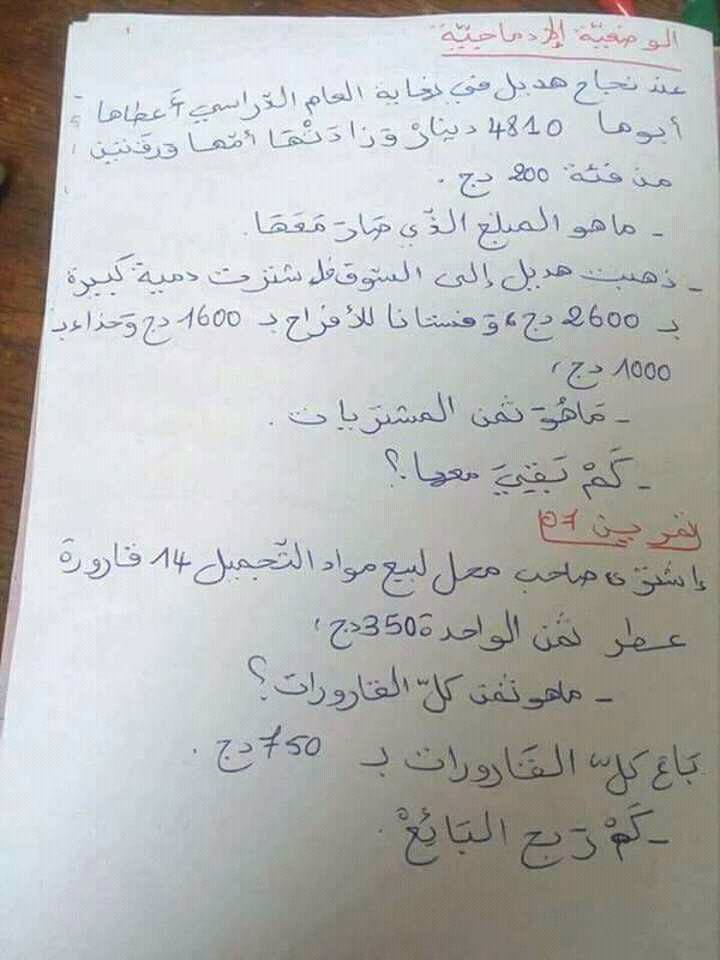 الوضعية الإدماجية
عند نجاح هديل في نهاية العام الدّراسي أعطاها
أبوها 4810 دينارْ وَزَادَتْهَا أمّها ورقتين
من فئة 200 دج .
- ماهو المبلغ الذّي صَارَ مَعَهَا.
- ذهبت هديل إلى السّوق فاشترت دمية كبيرة
بـ 2600 دج، وَفستانا للأفراح بـ 1600 دج وَحذاء بـ
1000 دج،
- مَاهُوَ ثمن المشتريات .
- كَمْ بَقِيَ معها؟
تمرين 07
إشترى صاحب محل لبيع مواد التّجميل 14 قارورة
عطر ثمن الواحدة 350دج،
- ماهو ثمن كلّ القارورات؟
بَاعَ كلّ القَارورات بـ 750 دج .
- كَمْ رَبح البَائِعْ.